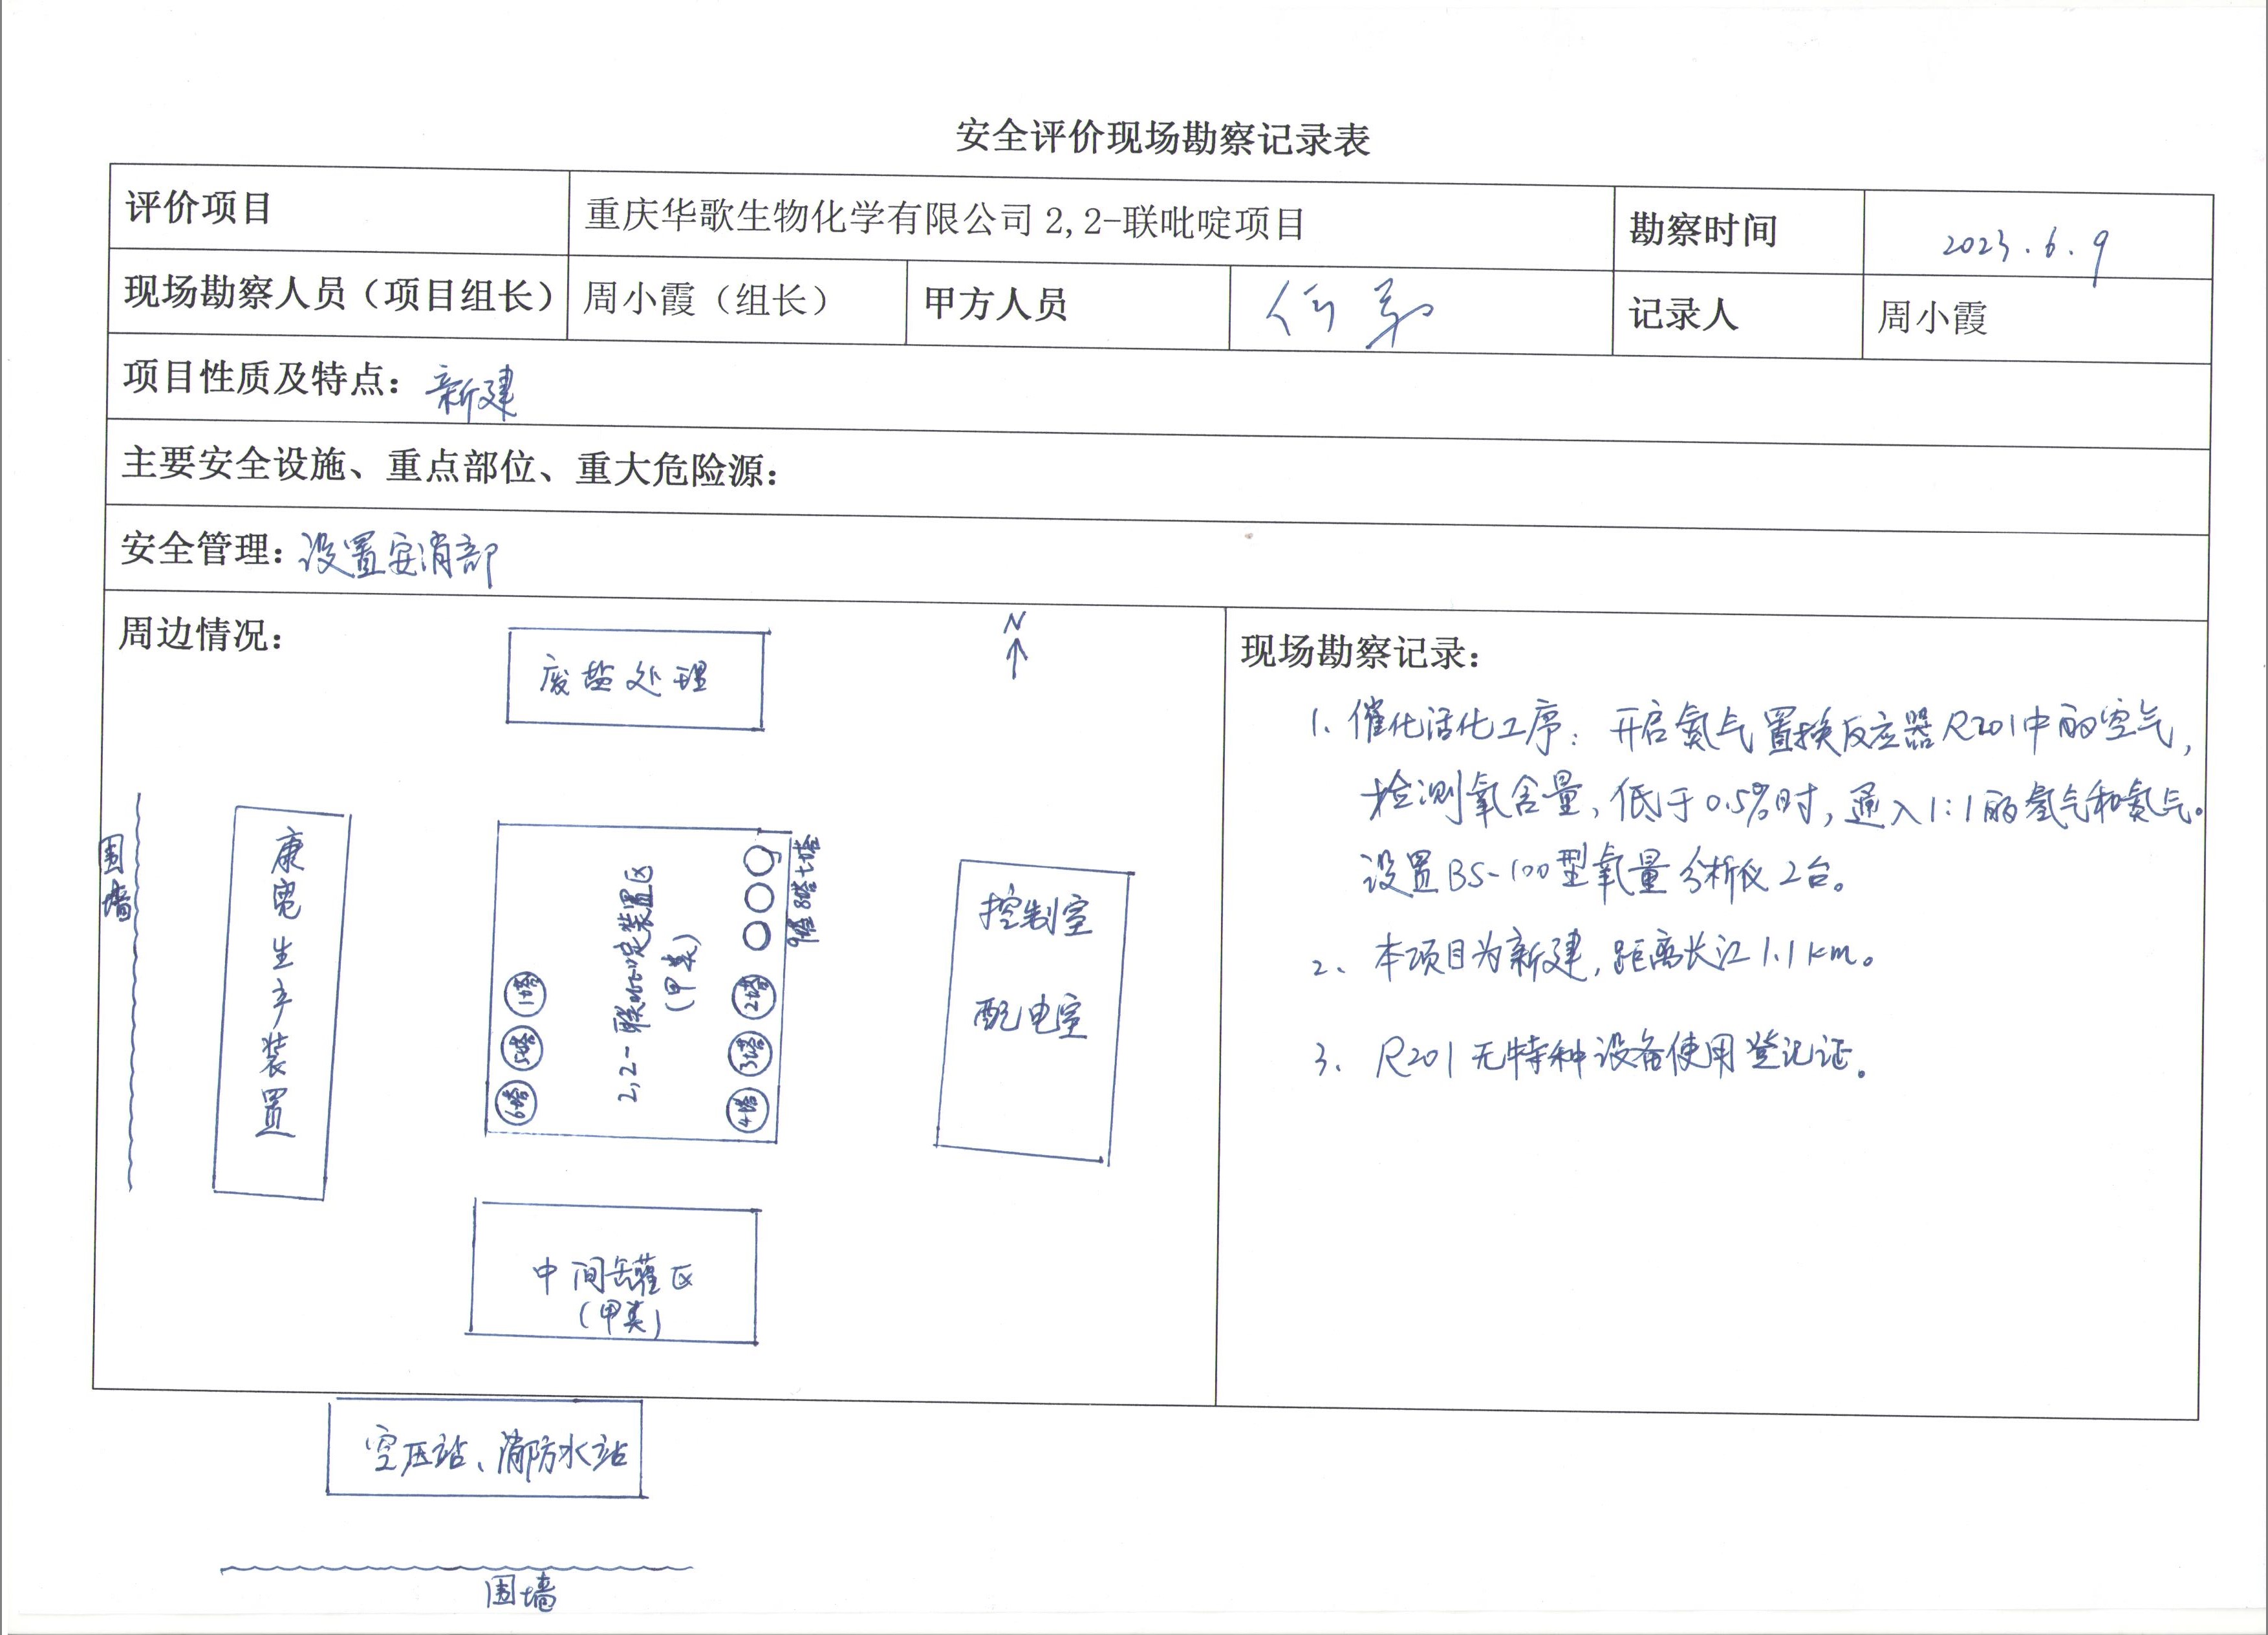 安全评价现场勘察记录表
评价项目 重庆华歌生物化学有限公司2,2-联吡啶项目 勘察时间 2023.6.9
现场勘察人员（项目组长） 周小霞（组长） 甲方人员 记录人 周小霞
项目性质及特点：新建
主要安全设施、重点部位、重大危险源：
安全管理：设置安消部
周边情况：
N
废盐处理
围墙
康宽生产装置
2,2-联吡啶装置区
（甲类）
1塔
5塔
6塔
七塔
8塔
9塔
2塔
3塔
4塔
控制室
配电室
中间罐区
（甲类）
空压站、消防水站
围墙
现场勘察记录：
1、催化活化工序：开启氮气置换反应器R201中的空气，
检测氧含量，低于0.5%时，通入1:1的氢气和氮气。
设置BS-100型氧量分析仪2台。
2、本项目为新建，距离长江1.1km。
3、R201无特种设备使用登记证。